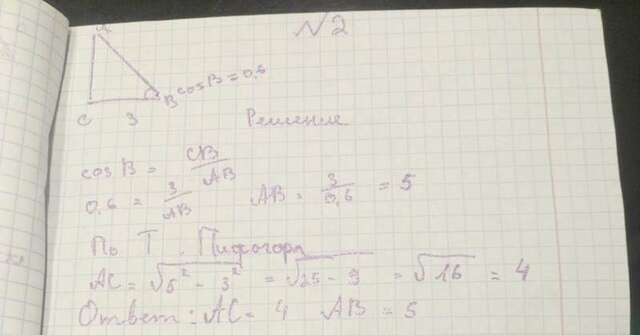 N 2
A
cos B = 0,6
C 3 B
Решение
cos B = CB/AB
0,6 = 3/AB AB = 3/0,6 = 5
По Т. Пифогора
AC = √5² - 3² = √25 - 9 = √16 = 4
Ответ: AC = 4 AB = 5